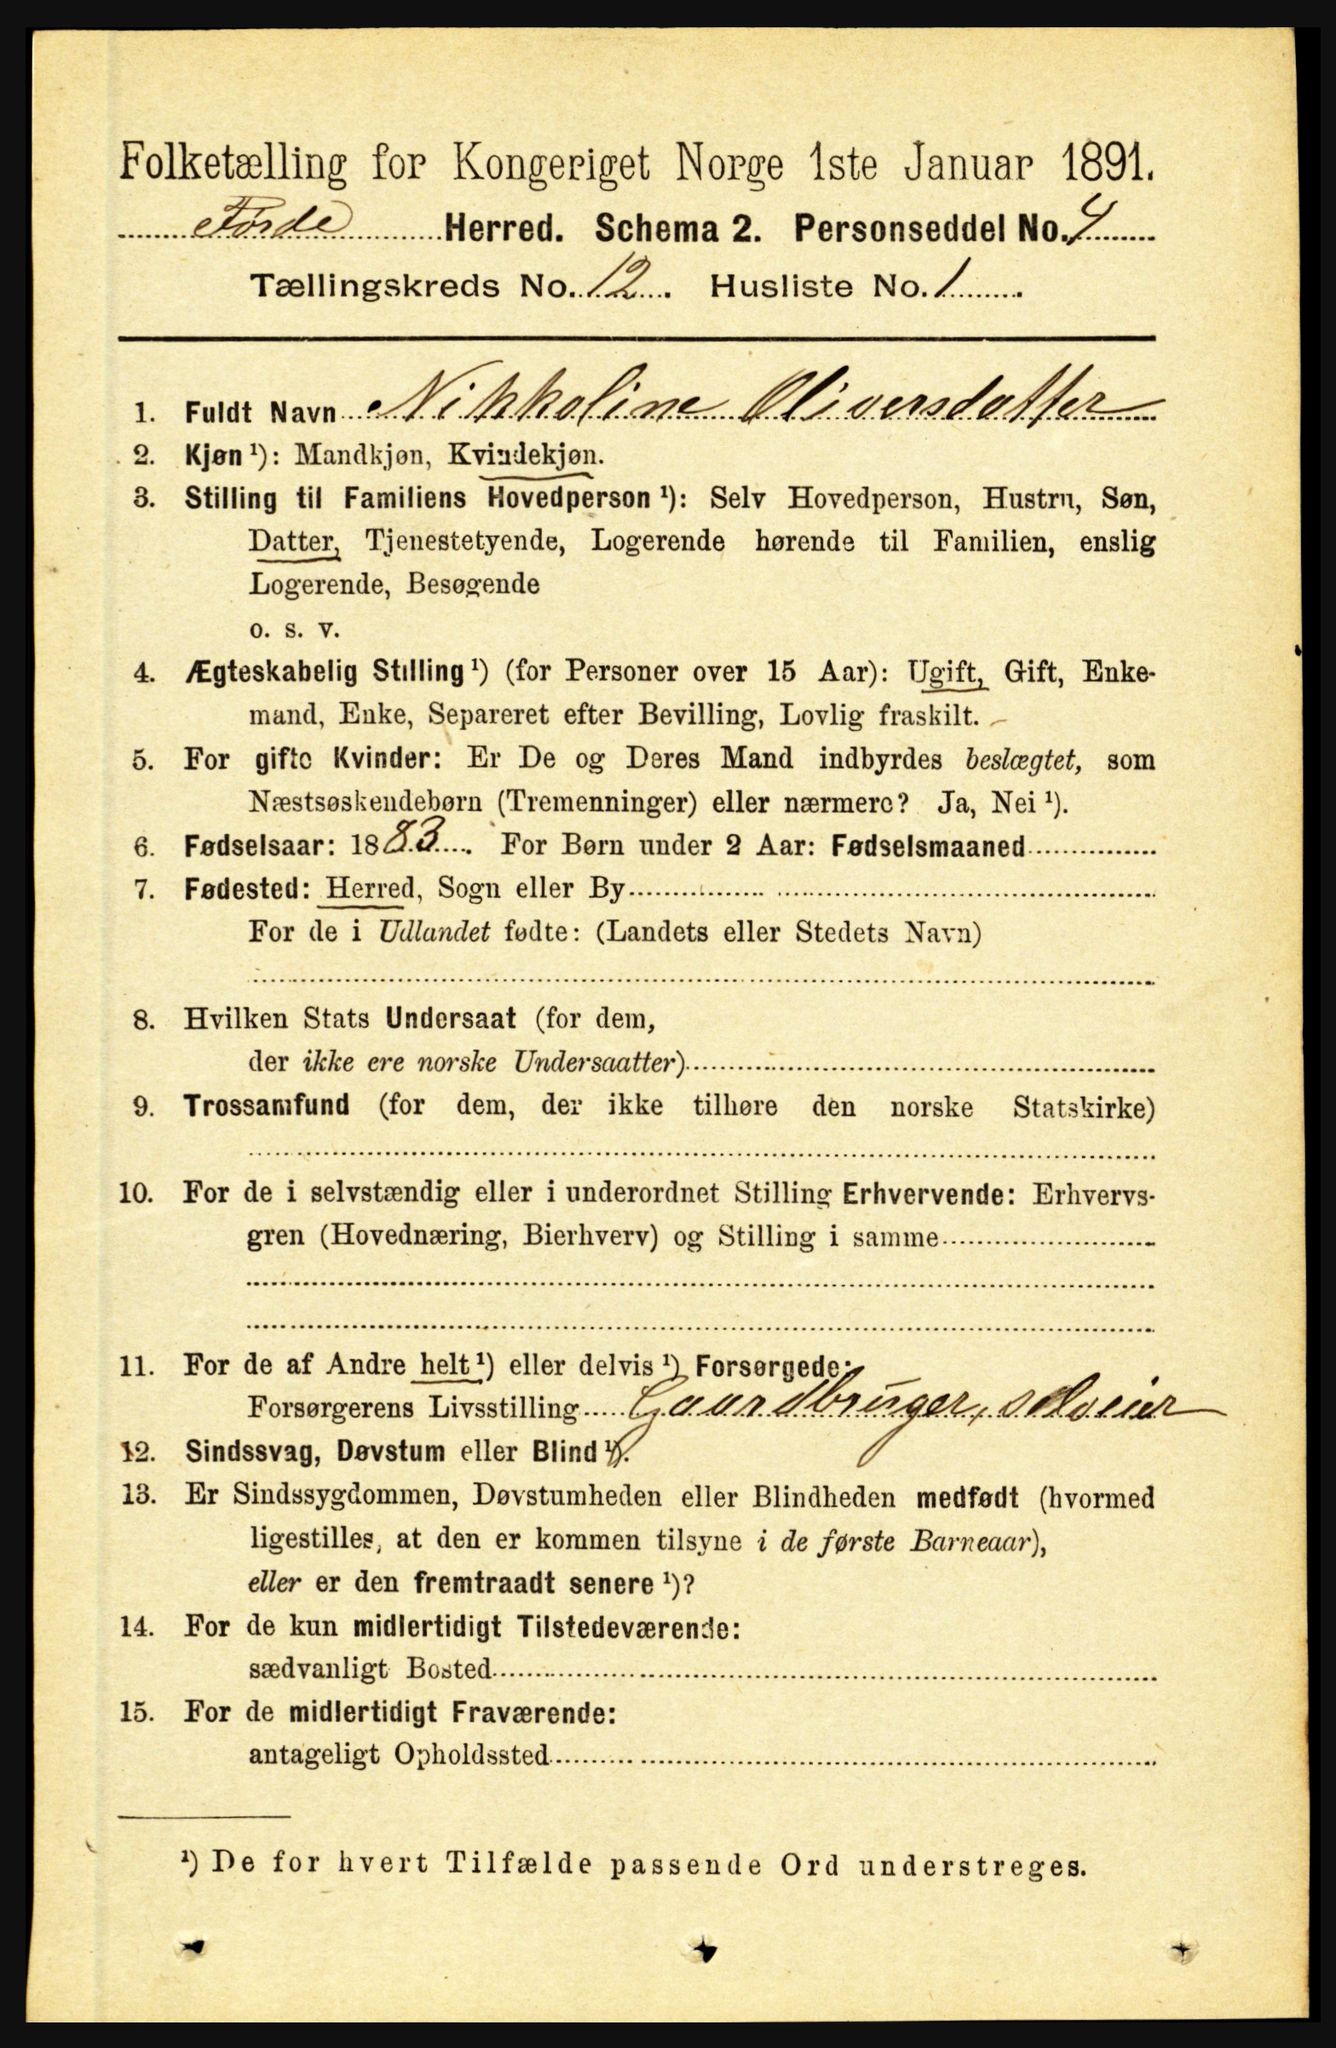 Folketælling for Kongeriget Norge 1ste Januar 1891.
Førde Herred. Schema 2. Personseddel No. 4
Tællingskreds No. 12. Husliste No. 1
1. Fuldt Navn Nikkoline Oliversdatter
2. Kjøn ¹): Mandkjøn, Kvindekjøn.
3. Stilling til Familiens Hovedperson ¹): Selv Hovedperson, Hustru, Søn,
Datter, Tjenestetyende, Logerende hørende til Familien, enslig
Logerende, Besøgende
o. s. v.
4. Ægteskabelig Stilling ¹) (for Personer over 15 Aar): Ugift, Gift, Enke-
mand, Enke, Separeret efter Bevilling, Lovlig fraskilt.
5. For gifte Kvinder: Er De og Deres Mand indbyrdes beslægtet, som
Næstsøskendebørn (Tremenninger) eller nærmere? Ja, Nei ¹).
6. Fødselsaar: 1883. For Børn under 2 Aar: Fødselsmaaned
7. Fødested: Herred, Sogn eller By
For de i Udlandet fødte: (Landets eller Stedets Navn)
8. Hvilken Stats Undersaat (for dem,
der ikke ere norske Undersaatter)
9. Trossamfund (for dem, der ikke tilhøre den norske Statskirke)
10. For de i selvstændig eller i underordnet Stilling Erhvervende: Erhvervs-
gren (Hovednæring, Bierhverv) og Stilling i samme
11. For de af Andre helt ¹) eller delvis ¹) Forsørgede:
Forsørgerens Livsstilling Gaardbruger, selveier
12. Sindssvag, Døvstum eller Blind ¹).
13. Er Sindssygdommen, Døvstumheden eller Blindheden medfødt (hvormed
ligestilles, at den er kommen tilsyne i de første Barneaar),
eller er den fremtraadt senere ¹)?
14. For de kun midlertidigt Tilstedeværende:
sædvanligt Bosted
15. For de midlertidigt Fraværende:
antageligt Opholdssted
¹) De for hvert Tilfælde passende Ord understreges.